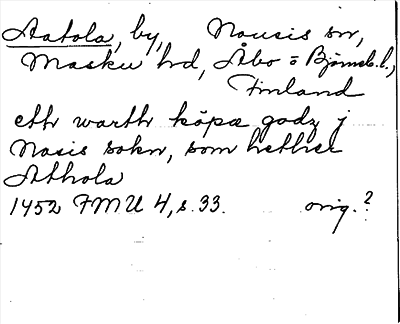 Aatola, by, Nousis sn,
Masku hd, Åbo o Björneb. l.,
Finland
ett warth köpæ godz j
Nosis sokn, som hether
Athola
1452 FMU 4, s. 33. orig.?